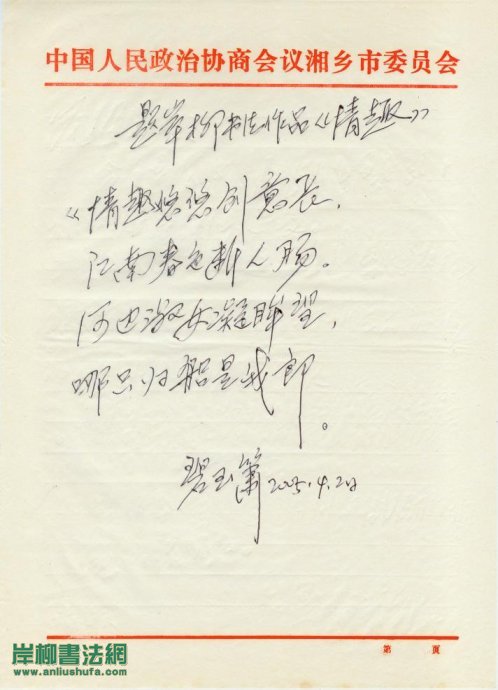 中国人民政治协商会议湘乡市委员会
题岸柳书法作品《情趣》
《情趣悠悠创意长，
江南春色断人肠。
河边淑女凝眸望，
哪只归船是我郎。
碧玉箫 2005.4.2日
第 页
岸柳書法網
www.anliushufa.com